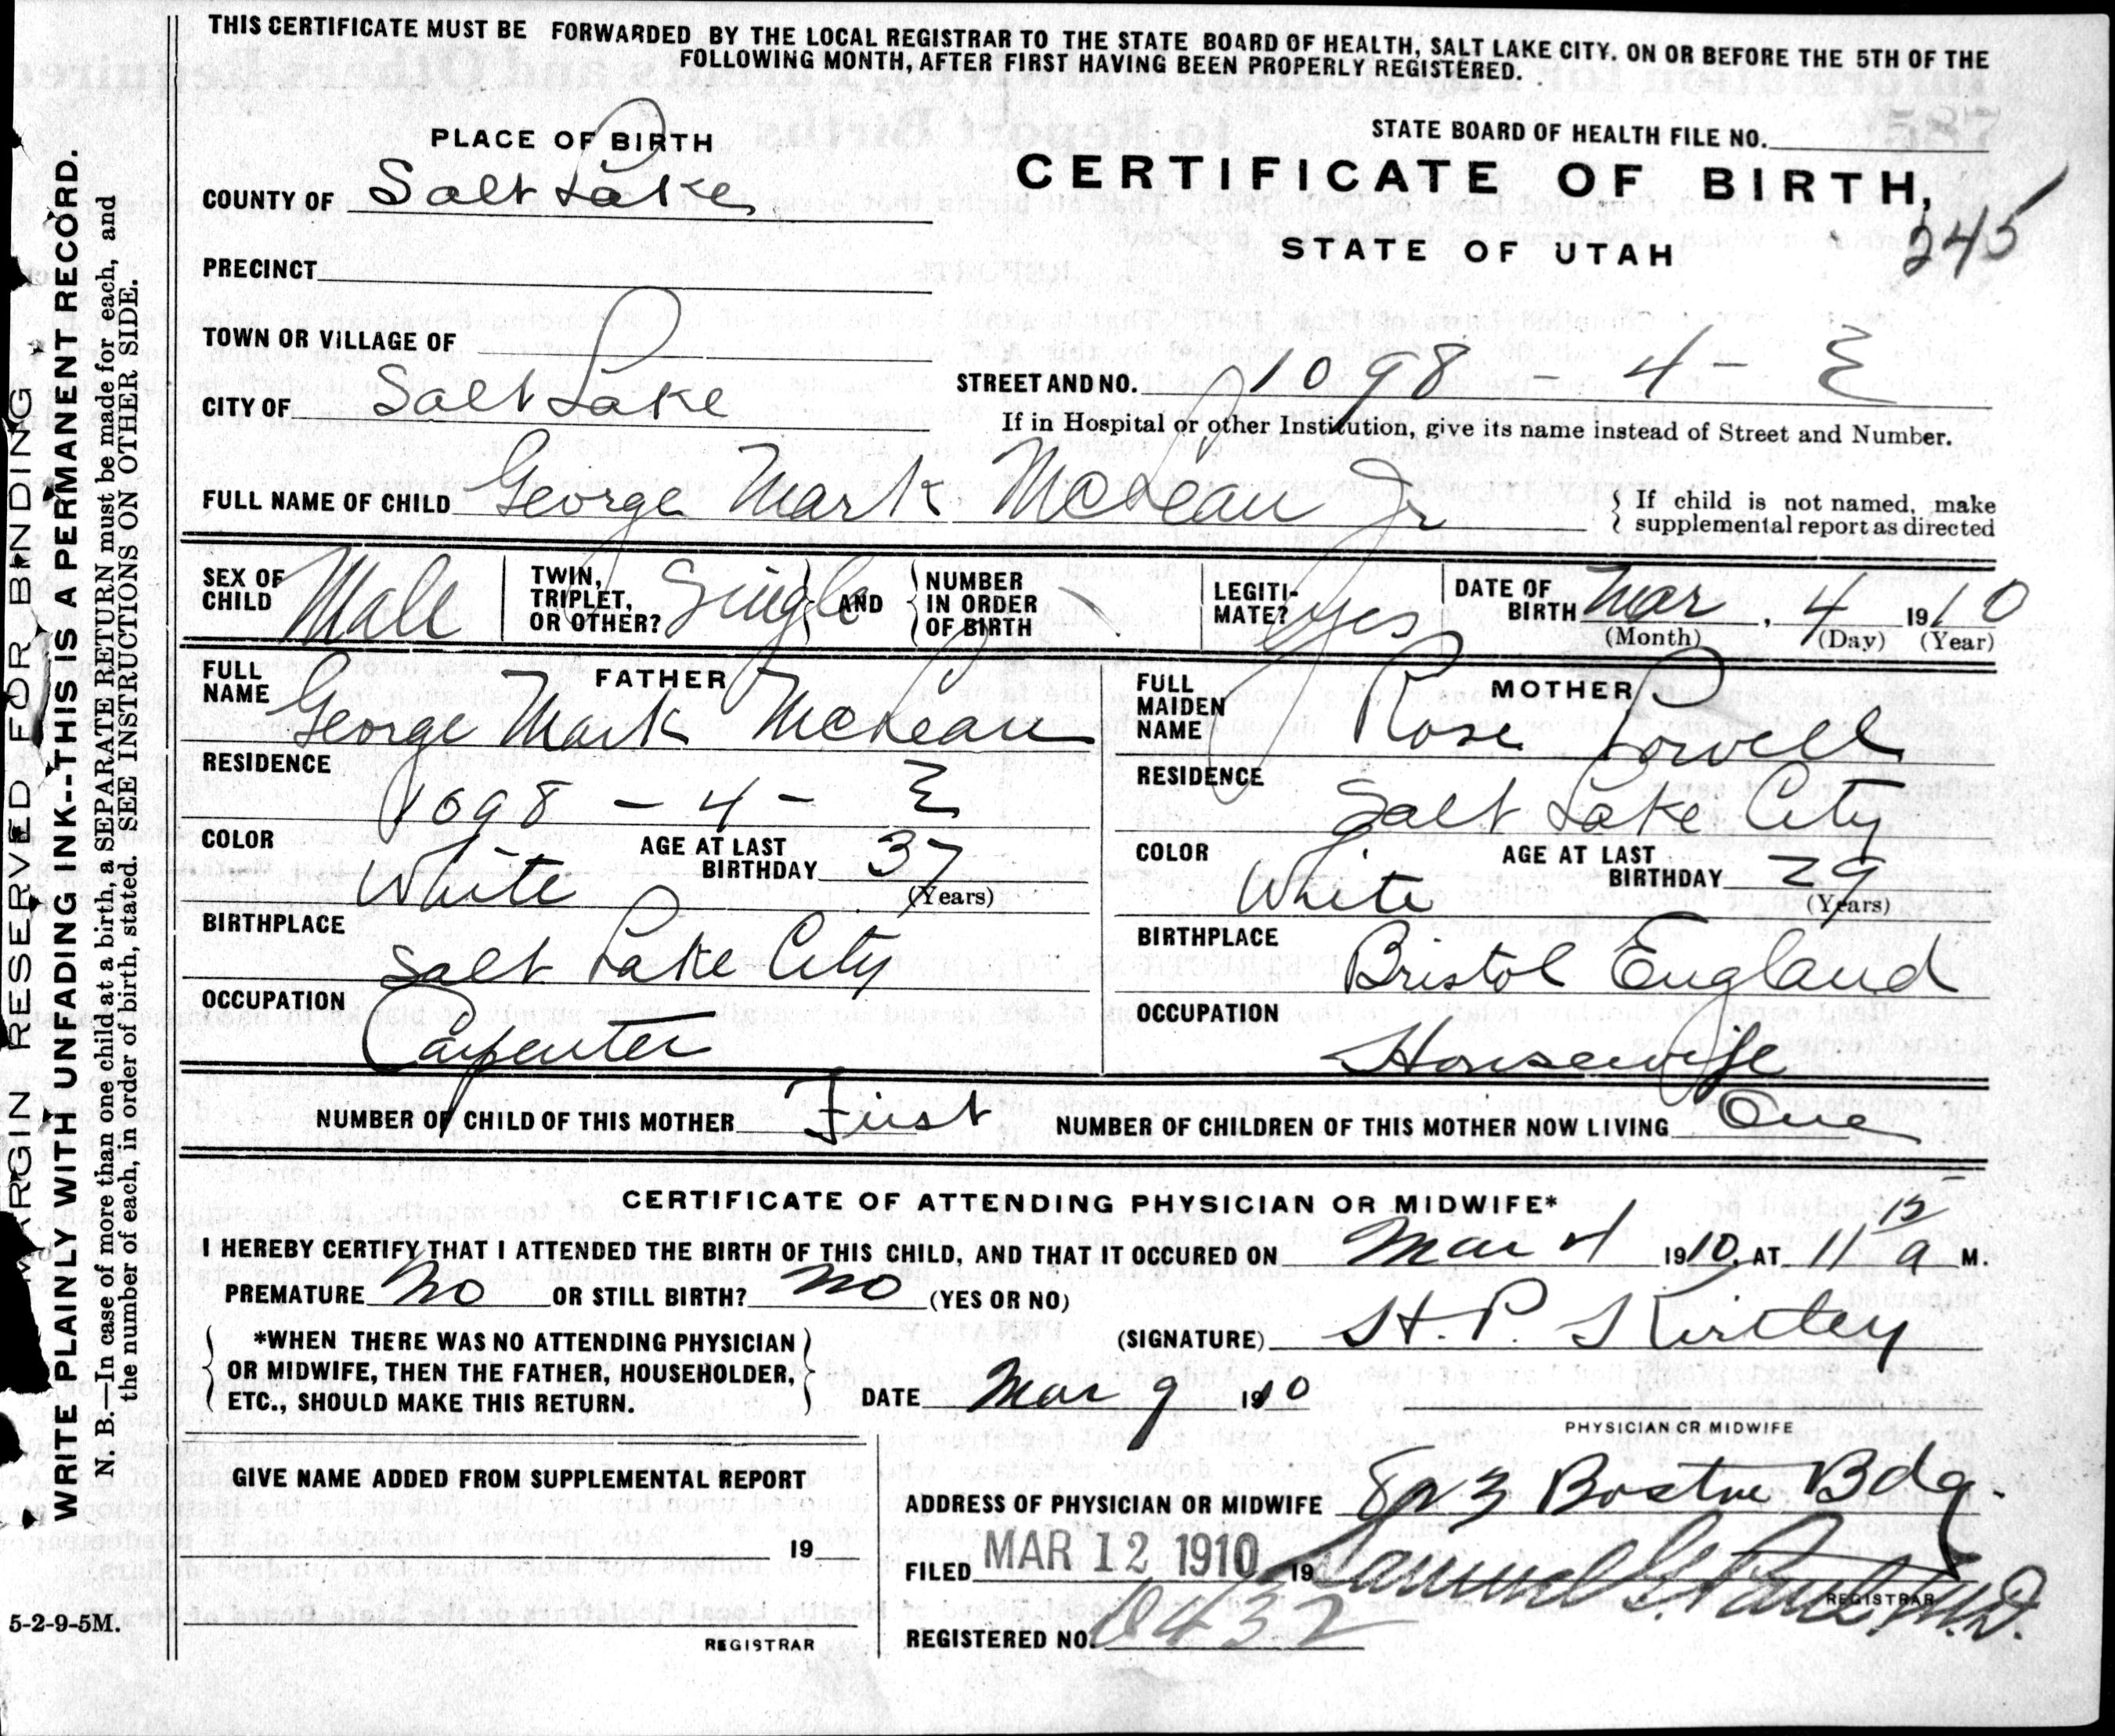 THIS CERTIFICATE MUST BE FORWARDED BY THE LOCAL REGISTRAR TO THE STATE BOARD OF HEALTH, SALT LAKE CITY. ON OR BEFORE THE 5TH OF THE
FOLLOWING MONTH, AFTER FIRST HAVING BEEN PROPERLY REGISTERED.
PLACE OF BIRTH
STATE BOARD OF HEALTH FILE NO.
CERTIFICATE OF BIRTH,
COUNTY OF Salt Lake
STATE OF UTAH 245
PRECINCT
TOWN OR VILLAGE OF
STREET AND NO. 1098 - 4 - E
CITY OF Salt Lake
If in Hospital or other Institution, give its name instead of Street and Number.
FULL NAME OF CHILD George Mark McLean Jr
If child is not named, make
supplemental report as directed
SEX OF CHILD Male
TWIN, TRIPLET, OR OTHER? Single AND NUMBER IN ORDER OF BIRTH
LEGITI-MATE? Yes
DATE OF BIRTH Mar, 4 1910
(Month) (Day) (Year)
FATHER
FULL NAME George Mark McLean
RESIDENCE
1098 - 4 - E
COLOR White AGE AT LAST BIRTHDAY 37
(Years)
BIRTHPLACE
Salt Lake City
OCCUPATION
Carpenter
MOTHER
FULL MAIDEN NAME Rose Powell
RESIDENCE
Salt Lake City
COLOR White AGE AT LAST BIRTHDAY 29
(Years)
BIRTHPLACE
Bristol England
OCCUPATION
Housewife
NUMBER OF CHILD OF THIS MOTHER First NUMBER OF CHILDREN OF THIS MOTHER NOW LIVING One
CERTIFICATE OF ATTENDING PHYSICIAN OR MIDWIFE*
I HEREBY CERTIFY THAT I ATTENDED THE BIRTH OF THIS CHILD, AND THAT IT OCCURED ON Mar 4 1910, AT 11 15 a M.
PREMATURE No OR STILL BIRTH? No (YES OR NO)
*WHEN THERE WAS NO ATTENDING PHYSICIAN
OR MIDWIFE, THEN THE FATHER, HOUSEHOLDER,
ETC., SHOULD MAKE THIS RETURN.
(SIGNATURE) H. P. Kirtley
DATE Mar 9 1910
PHYSICIAN OR MIDWIFE
GIVE NAME ADDED FROM SUPPLEMENTAL REPORT
19
REGISTRAR
ADDRESS OF PHYSICIAN OR MIDWIFE 823 Boston Bdg.
FILED MAR 12 1910 19 Samuel G. Paul, M.D.
REGISTRAR
REGISTERED NO. 0432
5-2-9-5M.
MARGIN RESERVED FOR BINDING
WRITE PLAINLY WITH UNFADING INK--THIS IS A PERMANENT RECORD.
N. B.—In case of more than one child at a birth, a SEPARATE RETURN must be made for each, and
the number of each, in order of birth, stated. SEE INSTRUCTIONS ON OTHER SIDE.